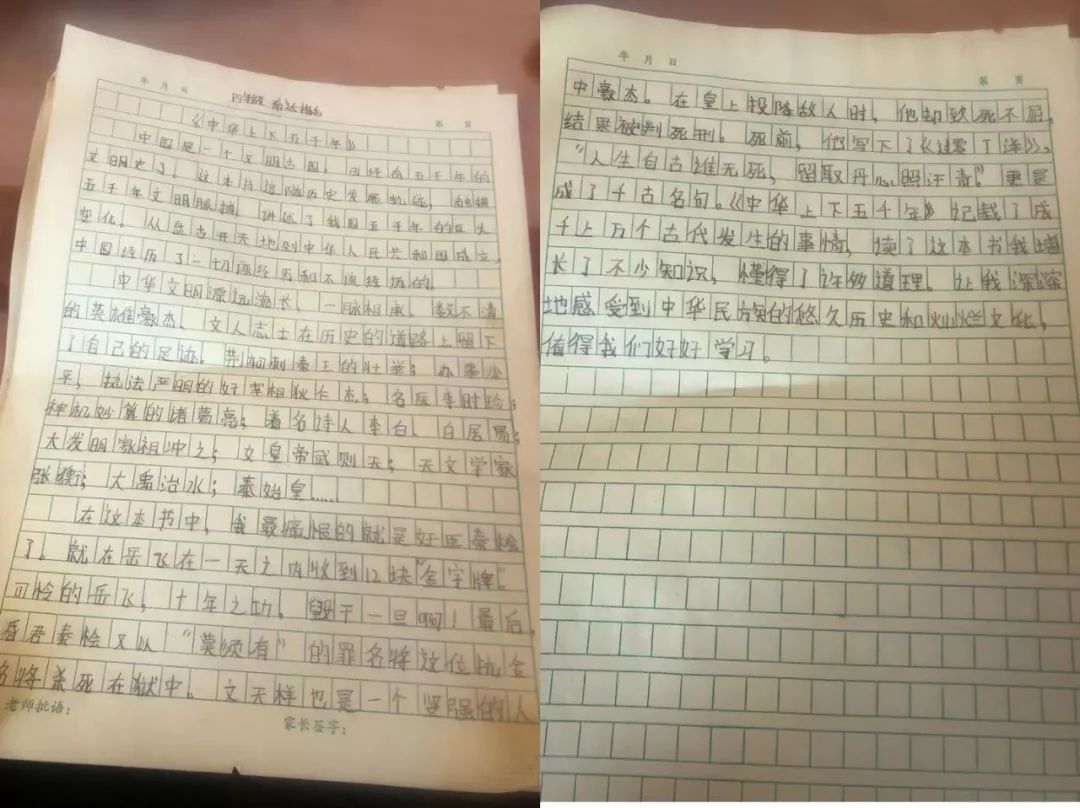 年 月 日
四年级
第 页
《中华上下五千年》
中国是一个文明古国，已经有五千年的
文明史了。这本书追随历史发展轨迹，
五千年文明脉搏，讲述了我国五千年的
变化。从盘古开天地到中华人民共和国成立，
中国经历了一切该经历和不该经历的。
中华文明源远流长，一脉相承。数不清
的英雄豪杰、文人志士在历史的道路上留下
了自己的足迹。荆轲刺秦王的壮举；办事公
平，执法严明的好宰相狄仁杰；名医李时珍；
神机妙算的诸葛亮；着名诗人李白、白居易；
大发明家祖冲之；女皇帝武则天；天文学家
张衡；大禹治水；秦始皇……
在这本书中，我最痛恨的就是奸臣秦桧
了。就在岳飞在一天之内收到12块“金字牌”。
可怜的岳飞，十年之功，毁于一旦啊！最后，
昏君秦桧又以“莫须有”的罪名将这位抗金
名将杀死在狱中。文天样也是一个坚强的人
老师批语：
家长签字：
年 月 日
第 页
中豪杰。在皇上投降敌人时，他却致死不屈，
结果被判死刑。死前，他写下了《过零丁洋》，
“人生自古谁无死，留取丹心照汗青。”更是
成了千古名句。《中华上下五千年》记载了成
千上万个古代发生的事情，读了这本书我增
长了不少知识，懂得了许多道理。让我深深
地感受到中华民族的悠久历史和灿烂文化，
值得我们好好学习。